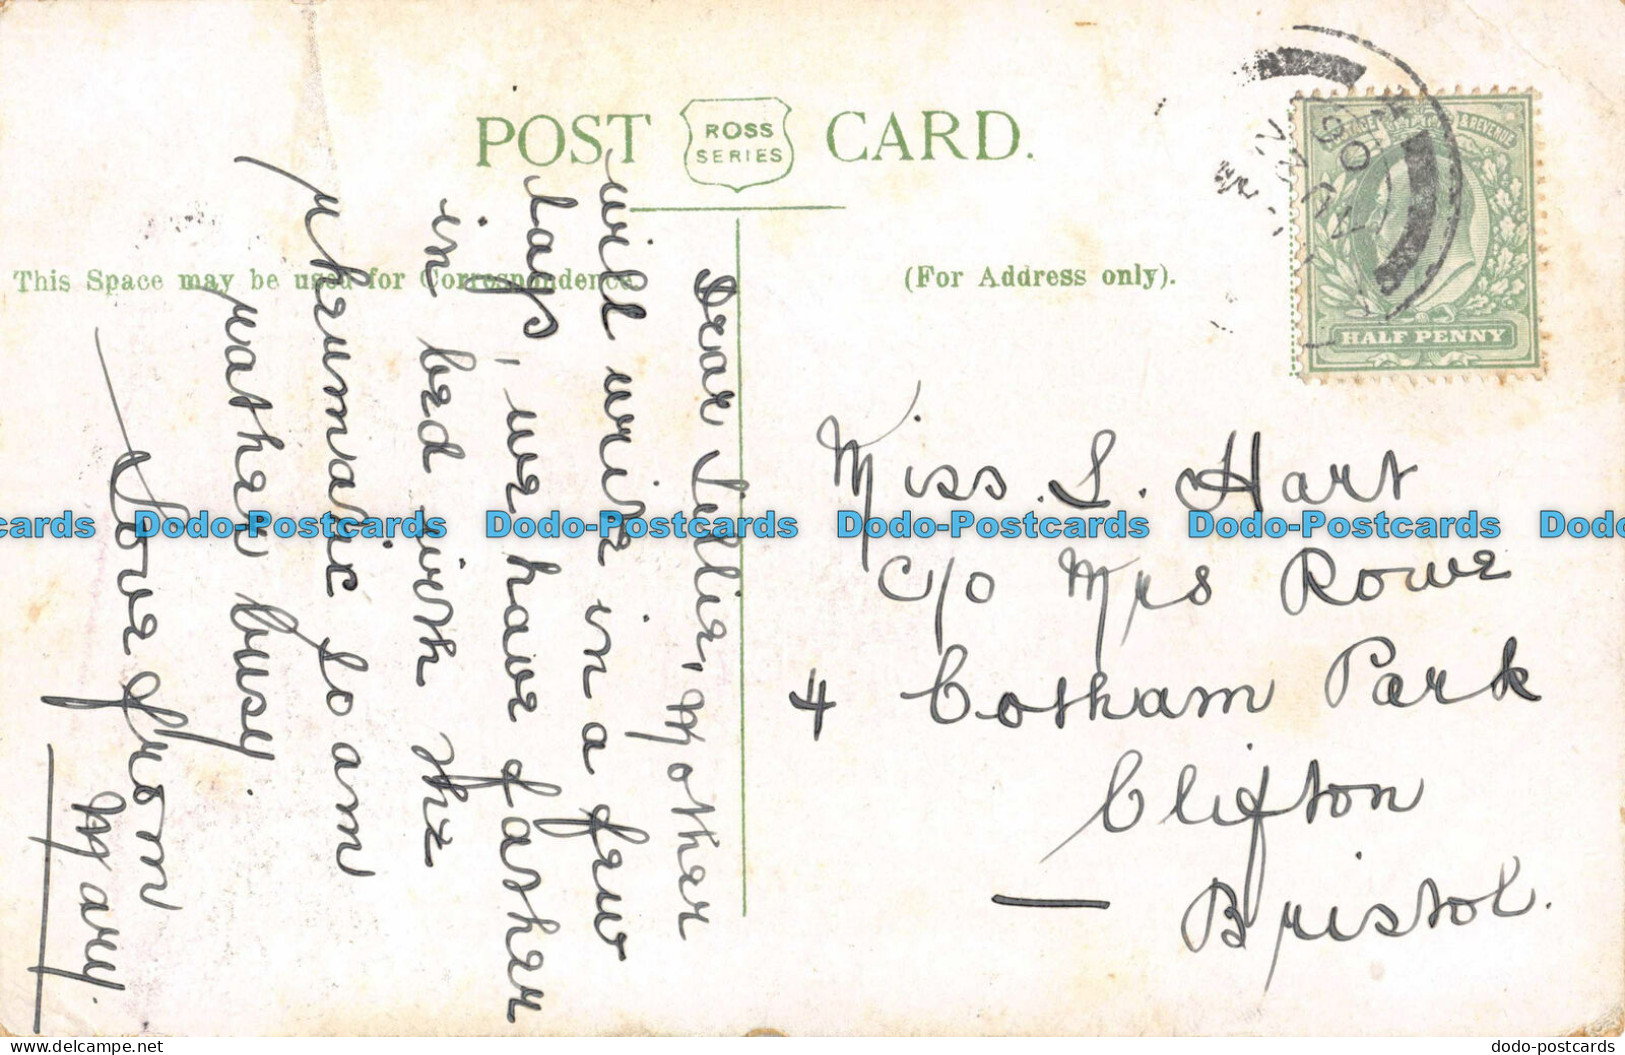 POST CARD.
ROSS
SERIES
This Space may be used for Correspondence.
(For Address only).
HALF PENNY
Dear Lillie, Mother
will write in a few
days, we have father
in bed with the
rheumatic so am
rather busy
Love from
Mary.
Miss. L. Hart
c/o Mrs Rowe
4 Cotham Park
Clifton
Bristol.
Dodo-Postcards Dodo-Postcards Dodo-Postcards Dodo-Postcards
dodo-postcards